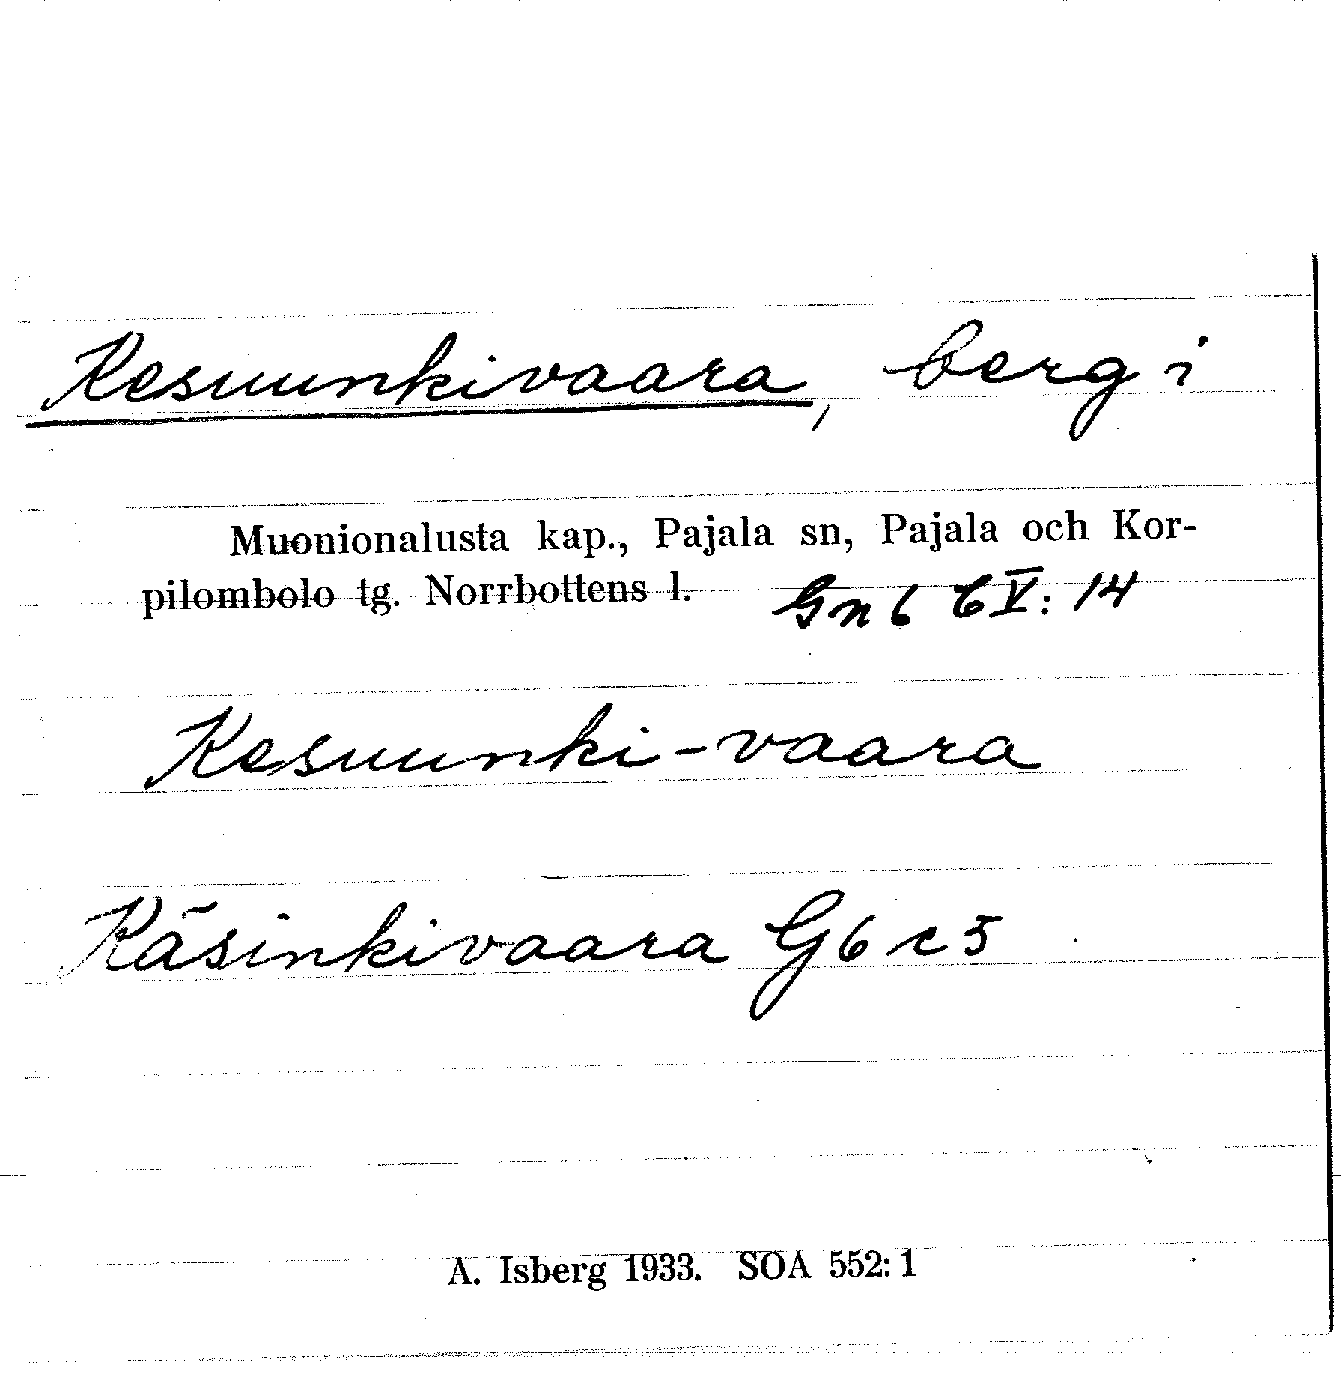 Kesuunkivaara, berg i
Muonionalusta kap., Pajala sn, Pajala och Kor-
pilombolo tg. Norrbottens l. Gnb CV: 14
Kesuunki-vaara
Käsinkivaara G6c5
A. Isberg 1933. SOA 552:1